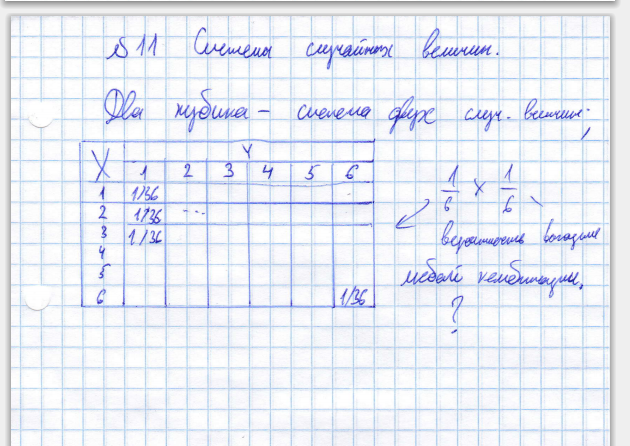 №11 Системы случайных величин.
Два кубика – система двух случ. величин;
X Y
1 2 3 4 5 6
1 1/36
2 1/36 ...
3 1/36
4
5
6 1/36
1/6 × 1/6
вероятность
любой комбинации.
?